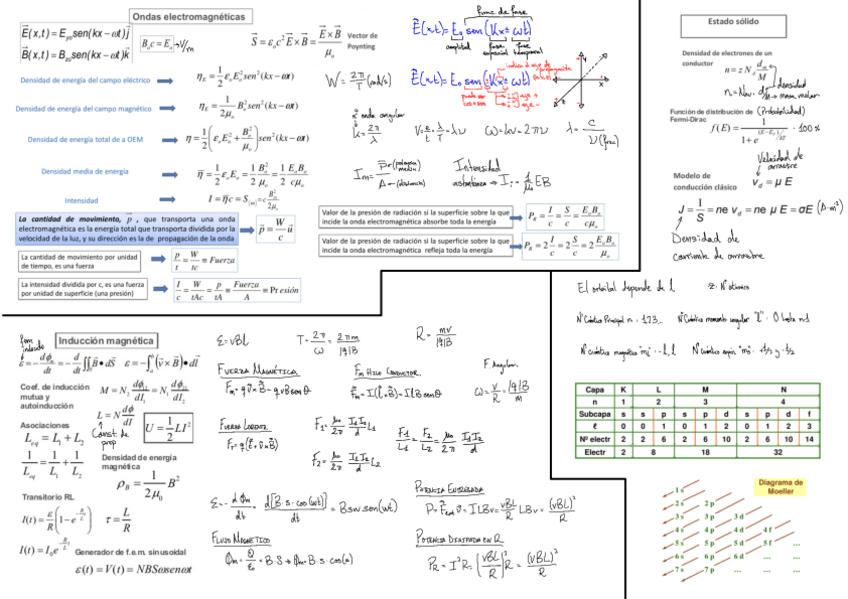 Ondas electromagnéticas
E(x,t) = E₀sen(kx − ωt)j
B(x,t) = B₀sen(kx − ωt)k
B₀c = E₀
S = ε₀c² E × B = E × B / μ₀
Vector de Poynting
Densidad de energía del campo eléctrico
η_E = 1/2 ε₀E₀² sen²(kx − ωt)
Densidad de energía del campo magnético
η_B = 1/2μ₀ B₀² sen²(kx − ωt)
Densidad de energía total de a OEM
η = 1/2 (ε₀E₀² + B₀²/μ₀) sen²(kx − ωt)
Densidad media de energía
η = 1/2 ε₀E₀² = 1/2 B₀²/μ₀ = 1/2 E₀B₀/cμ₀
Intensidad
La cantidad de movimiento, p , que transporta una onda
electromagnética es la energía total que transporta dividida por la
velocidad de la luz, y su dirección es la de propagación de la onda
p = W/c u
La cantidad de movimiento por unidad
de tiempo, es una fuerza
p/t = W/tc = Fuerza
La intensidad dividida por c, es una fuerza
por unidad de superficie (una presión)
I/c = W/tAc = p/tA = Fuerza/A = Presión
Func de fase
E(x,t) = E₀ sen (Kx ± ωt)
amplitud
fase espacial
fase temporal
E(x,t) = E₀ sen (Kx ± ωt)
W = 2π/T (rad/s)
nº onda angular
k = 2π/λ
ω = kv = 2πν
λ = c/ν
Intensidad
instantánea → I = 1/μ₀ EB
Valor de la presión de radiación si la superficie sobre la que
incide la onda electromagnética absorbe toda la energía
P_R = I/c = S/c = E₀B₀/cμ₀
Valor de la presión de radiación si la superficie sobre la que
incide la onda electromagnética refleja toda la energía
Estado sólido
Densidad de electrones de un
conductor
n = z N_A d_m/M
densidad
masa molar
Función de distribución de (Probabilidad)
Fermi-Dirac
f(E) = 1/(1 + e^((E−E_F)/kT)) · 100%
Modelo de
conducción clásico
Velocidad de
arrastre
v_d = μ E
J = I/S = ne v_d = ne μ E = σE
Densidad de
corriente de arrastre
El orbital depende de
z: Nº atómico
Nº Cuántico Principal n = 1,2,3...
Nº Cuántico momento angular "l" 0 hasta n-1
Nº Cuántico magnético "m" = -l, l
Nº Cuántico espín "ms" = 1/2 y -1/2
Capa K L M N
n 1 2 3 4
Subcapa s s p s p d s p d f
ℓ 0 0 1 0 1 2 0 1 2 3
Nº electr 2 2 6 2 6 10 2 6 10 14
Electr 2 8 18 32
Diagrama de
Moeller
1 s
2 s 2 p
3 s 3 p 3 d
4 s 4 p 4 d 4 f
5 s 5 p 5 d 5 f ...
6 s 6 p 6 d ... ...
7 s 7 p ... ... ...
Inducción magnética
fem
inducida
ε = −dφ_m/dt = −d/dt ∬B•dS
ε = −∫(v × B)•dl
Coef. de inducción
mutua y
autoinducción
M = N₂ dφ₁₂/dI₁ = N₁ dφ₂₁/dI₂
L = N dφ/dI
Const. de
prop
Asociaciones
L_eq = L₁ + L₂
1/L_eq = 1/L₁ + 1/L₂
U = 1/2 LI²
Densidad de energía
magnética
ρ_B = 1/2μ₀ B²
Transitorio RL
I(t) = ε/R (1 − e^(−R/L t))
τ = L/R
I(t) = I₀e^(−R/L t)
Generador de f.e.m. sinusoidal
ε(t) = V(t) = NBSωsenωt
ε = vBL
T = 2π/ω = 2πm/|q|B
R = mv/|q|B
Fuerza Magnética
F_m = q v × B = qvB sen θ
Fm Hilo Conductor
F_m = I(L × B) = I L B sen θ
F. Angular
ω = v/R = |q|B/m
Fuerza Lorentz
F_T = q(E + v × B)
F₁ = μ₀/2π I₁I₂/d L₁
F₂ = μ₀/2π I₁I₂/d L₂
F₁/L₁ = F₂/L₂ = μ₀/2π I₁I₂/d
ε = −dφ_m/dt = d[B·S·cos(ωt)]/dt = Bsw sen(wt)
Flujo Magnético
φ_m = Q/ε₀ = B·S → φ_m = B·S·cos(α)
Potencia Entregada
P = F_ext v = I L B v = vBL/R LBv = (vBL)²/R
Potencia Disipada en R
P_R = I²R = (vBL/R)² R = (vBL)²/R